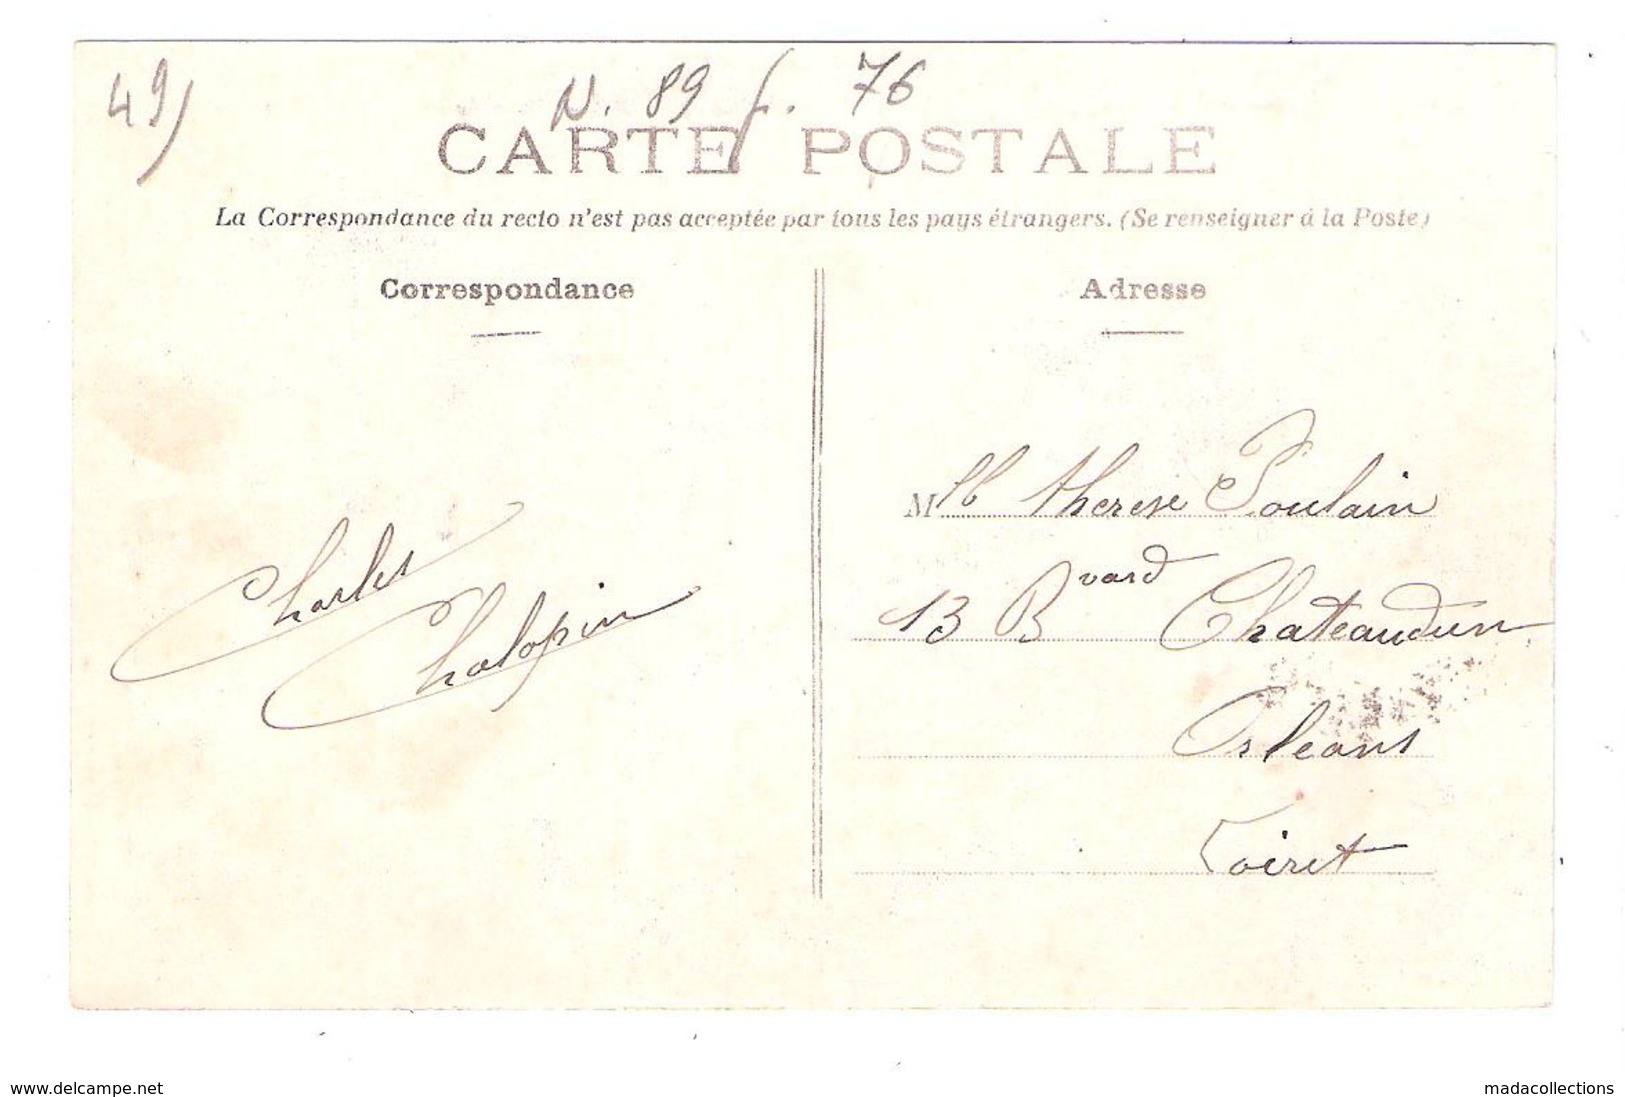 49)
N. 89 f. 76
CARTE POSTALE
La Correspondance du recto n'est pas acceptée par tous les pays étrangers. (Se renseigner à la Poste)
Correspondance
Adresse
Charles
Chalopin
Mlle therese Poulain
13 Bvard Chateaudun
Orleans
Loiret
www.delcampe.net
madacollections